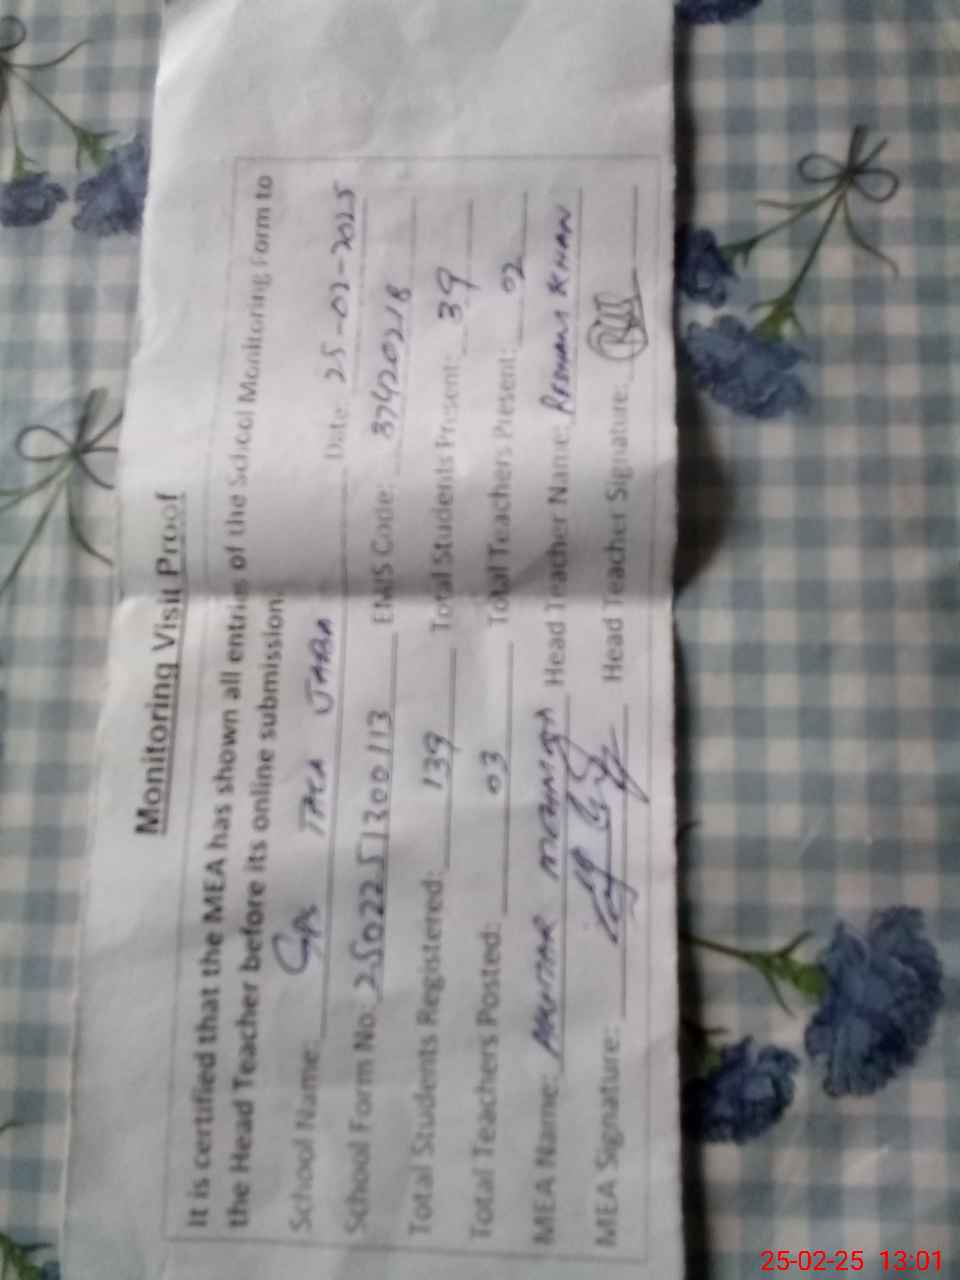 Monitoring Visit Proof
It is certified that the MEA has shown all entries of the School Monitoring Form to
the Head Teacher before its online submission.
School Name: GPS JABA Date: 25-02-2025
School Form No: 2502251300113 EMIS Code: 37420218
Total Students Registered: 139 Total Students Present: 39
Total Teachers Posted: 03 Total Teachers Present: 02
MEA Name: Head Teacher Name: KHAN
MEA Signature: Head Teacher Signature:
25-02-25 13:01